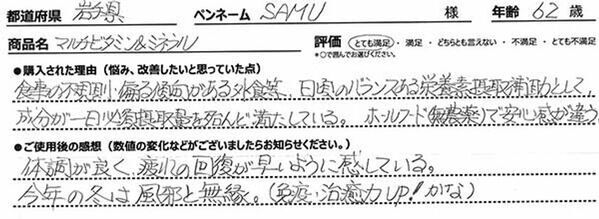 都道府県 岩手県 ペンネーム SAMU 様 年齢 62 歳
商品名 マルチビタミン&ミネラル 評価 とても満足・満足・どちらとも言えない・不満足・とても不満足
*○で囲んでお選びください。
●購入された理由（悩み、改善したいと思っていた点）
食事の不規則・偏る傾向がある外食等、日頃のバランスある栄養素摂取補助として、
成分が一日必須摂取量を殆んど満たしている。ホールフード(無農薬)で安心感が違う
●ご使用後の感想（数値の変化などがございましたらお知らせください。）
体調が良く、疲れの回復が早いように感じている。
今年の冬は風邪と無縁。(免疫・治癒力UP!かな)